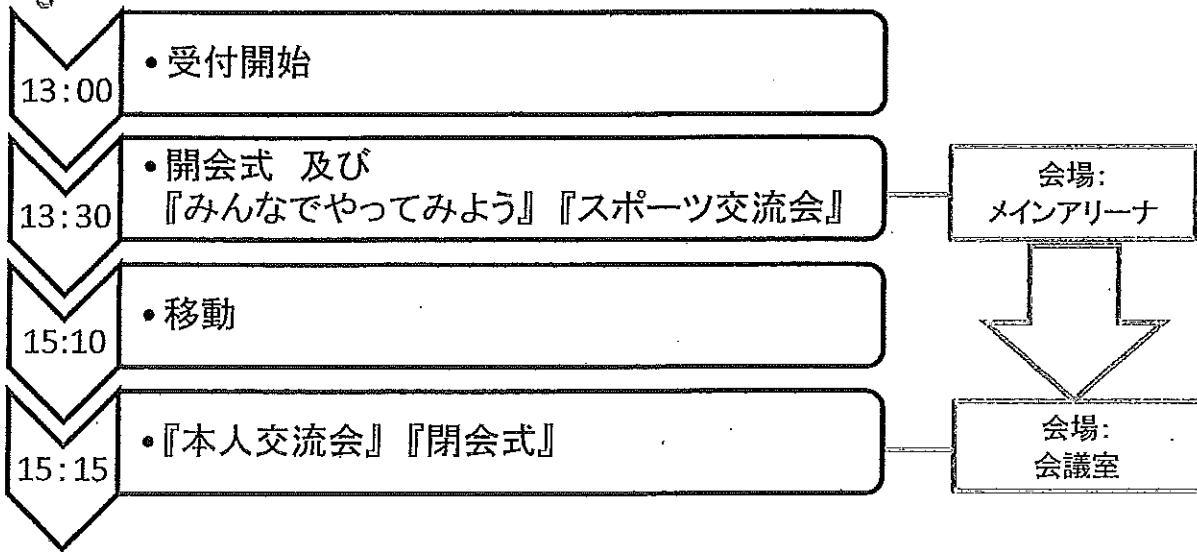 13:00
•受付開始
13:30
•開会式 及び
『みんなでやってみよう』『スポーツ交流会』
会場:
メインアリーナ
15:10
•移動
15:15
•『本人交流会』『閉会式』
会場:
会議室